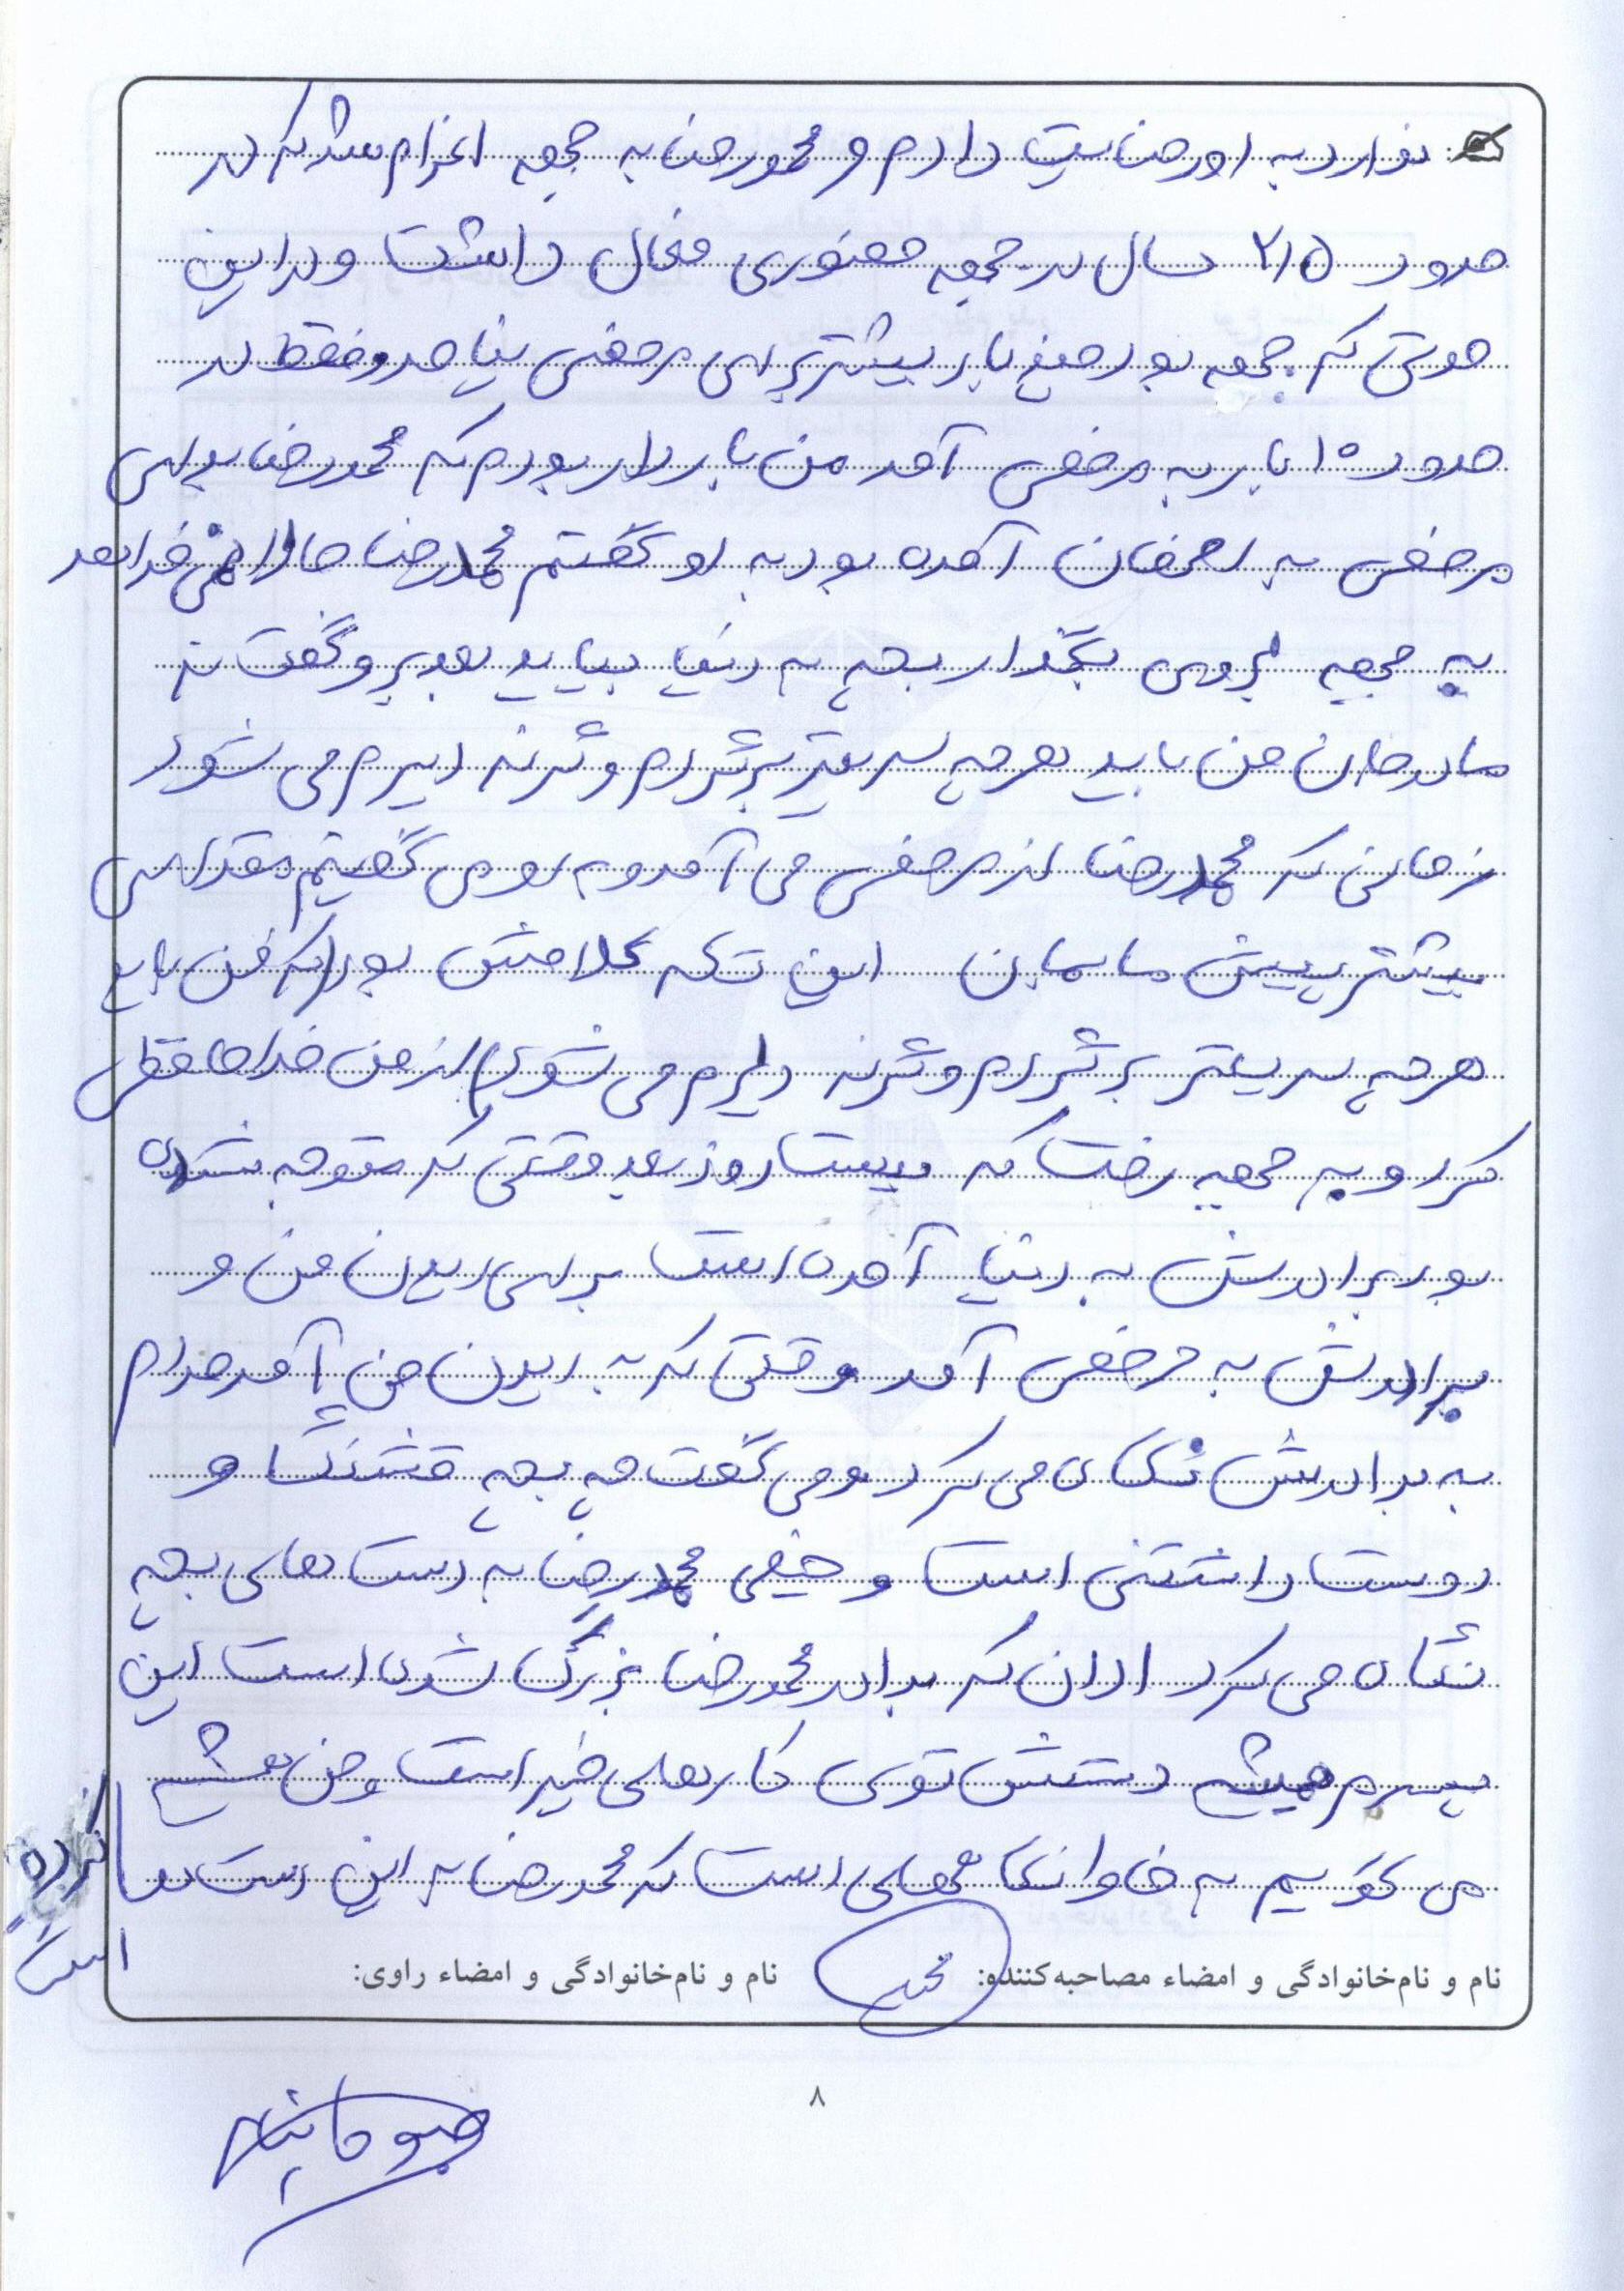 ندارد به او رضایت دادم و محمدرضا به جبهه اعزام شد که در
حدود ۲/۵ سال در جبهه حضوری فعال داشت و در این
مدتی که جبهه بود چند بار بیشتر برای مرخصی نیامد و فقط در
حدود ۱۰ بار به مرخصی آمد من باردار بودم که محمدرضا برای
مرخصی به اصفهان آمده بود به او گفتم محمدرضا حالا نمی‌خواهد
به جبهه بروی بگذار بچه به دنیا بیاید بعد برو گفت نه
مادر جان من باید هر چه سریعتر برگردم وگرنه دیرم می شود
زمانی که محمدرضا از مرخصی می آمد و به او می گفتیم مقداری
بیشتر پیش ما بمان این تکه کلامش بود (که من باید
هر چه سریعتر برگردم وگرنه دیرم می شود) از من خداحافظی
کرد و به جبهه رفت که بیست روز بعد وقتی که متوجه شده
بود برادرش به دنیا آمده است برای دیدن من و
برادرش به مرخصی آمد وقتی که به دیدن من آمد مدام
به برادرش نگاه می کرد و می گفت چه بچه قشنگ و
دوست داشتنی است و خیلی محمدرضا به دست های بچه
نگاه می کرد الان که برادر محمدرضا بزرگ شده است این
پسرم همیشه دستش توی کارهای خیر است و من همیشه
می گویم به خاطر نگاه هایی است که محمدرضا به این دست ها
کرده
است
نام و نام‌خانوادگی و امضاء مصاحبه‌کننده: نام و نام‌خانوادگی و امضاء راوی:
۸